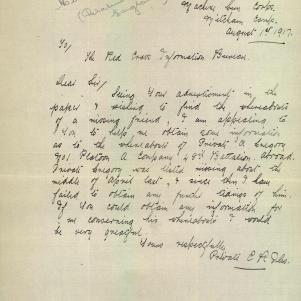 Machine Gun Corps
August 1st 1917.
To/
The Red Cross Information Bureau.
Dear Sir/
Seing your advertisment in the
paper & wishing to find the whereabouts
of a missing friend, I am appealing to
you to help me obtain some information
as to the whereabouts of Private A Gregory
Platoon A Company, 48th Battalion, abroad.
Private Gregory was listed missing about the
middle of April last, & since then I have
failed to obtain any further tidings of him.
If you could obtain any information for
me concerning his whereabouts I would
be very grateful.
Yours respectfully
Private E A